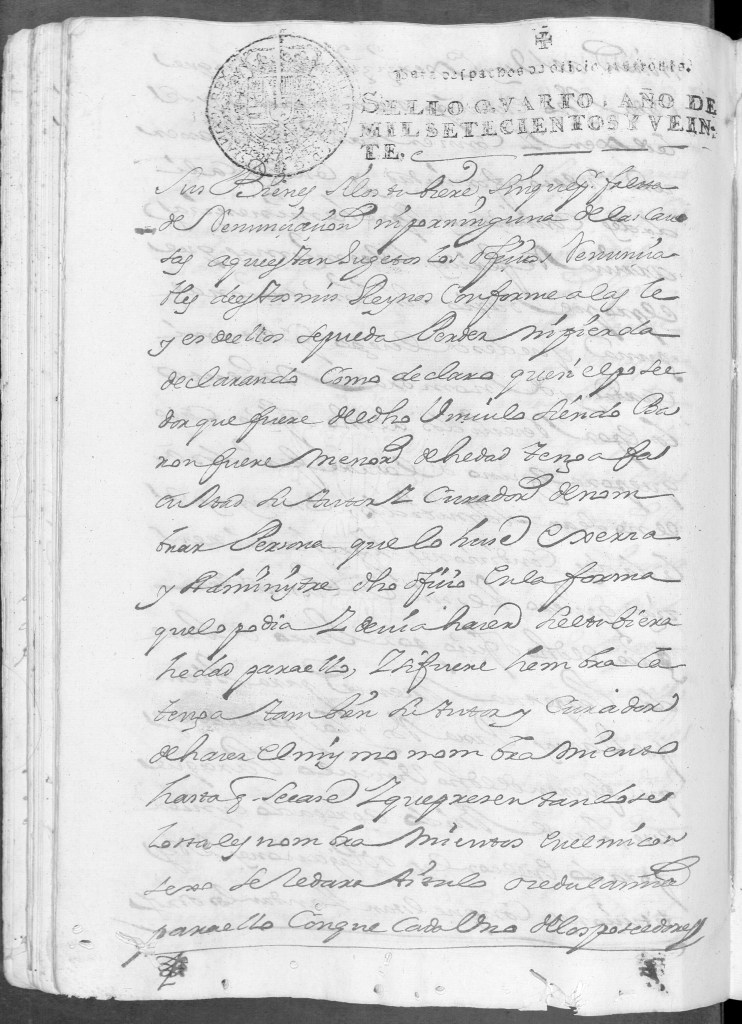 SELLO QVARTO, AÑO DE
MIL SETECIENTOS Y VEIN-
TE.
sus Bienes si los tubiere, sin que pr. falta
de Renunciacion ni por ninguna de las cau
sas aque estan sugetos los ofiçios Renuncia
bles de estos mis Reynos Conforme a las le
yes de ellos se pueda Perder ni pierda
declarando Como declaro que si el posee
dor que fuere de dho Vinculo siendo Ba
ron fuere menor de hedad tenga fa
cultad su tutor Y Curador de nom
brar Persona que lo huse Exerza
y Administre dho ofiçio en la forma
que lo podia Y devia hacer si el tubiera
hedad para ello, Y si fuere hembra la
tenga tambien su tutor y Curador
de hacer el mismo nombramiento
hasta q. se case Y que presentandose
los tales nombramientos en el mi con
sexo se le dara titulo o cedula mia
para ello Con que Cada Uno de los poseedores